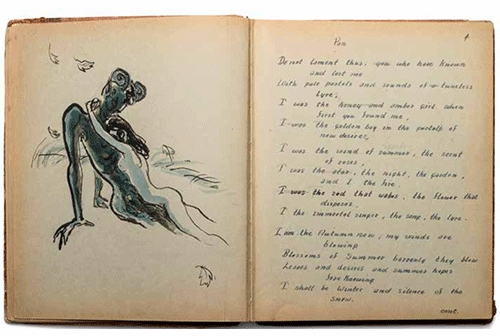 Pan
4
Do not lament thus, you who have known
and lost me
With pale pastels and sounds of a tuneless
Lyre;
I was the honey and amber girl when
first you found me,
I was the golden boy in the pastels of
new desires,
I was the wind of summer, the scent
of roses,
I was the star, the night, the garden,
and I the fire.
I was the rod that wakes, the flower that
disposes,
I the immortal singer, the song, the lyre.
I am the Autumn now, my winds are
blowing
Blossoms of Summer they blow
Losses and desires and summer hopes
foreknowing
I shall be Winter and silence of the
snow.